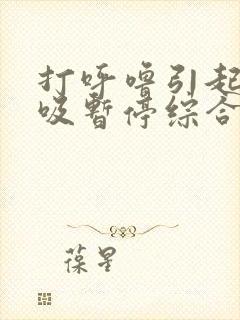 打呼噜引起
吸暂停综合
葆星